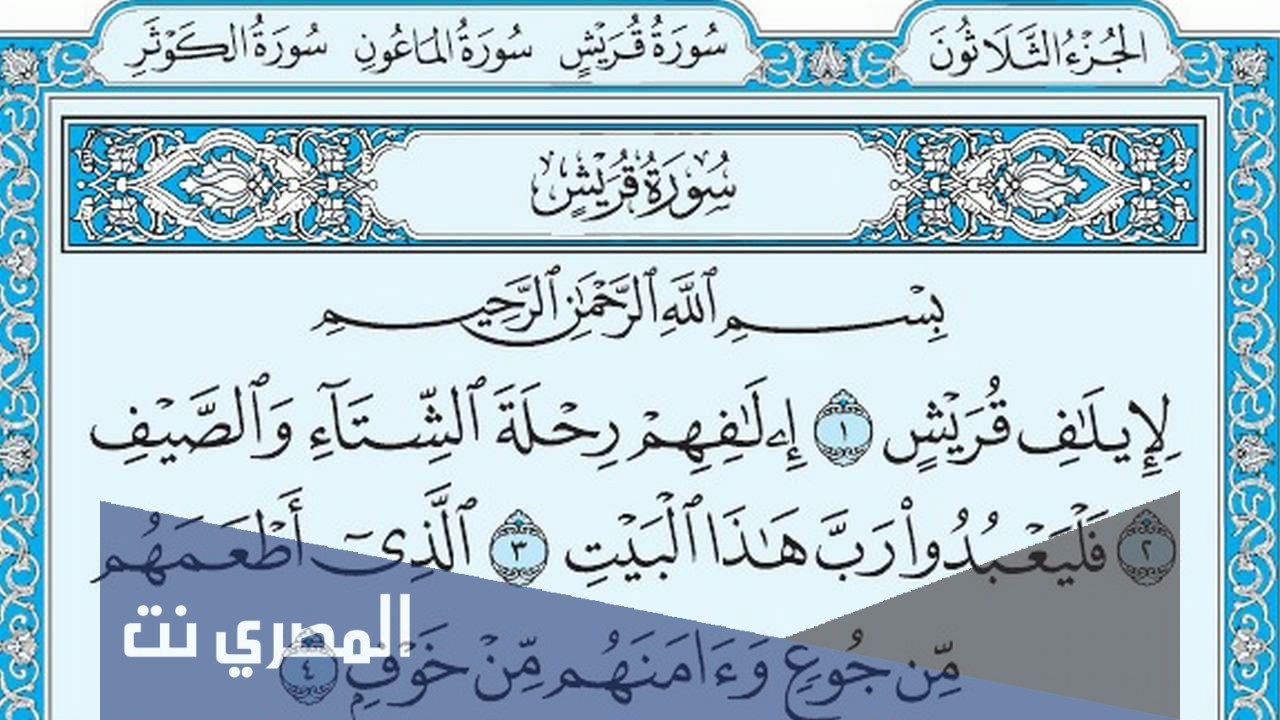 الجُزْءُ الثَّلَاثُونَ
سُورَةُ قُرَيْشٍ سُورَةُ المَاعُونِ سُورَةُ الكَوْثَرِ
سُورَةُ قُرَيْشٍ
بِسْمِ ٱللَّهِ ٱلرَّحْمَٰنِ ٱلرَّحِيمِ
لِإِيلَٰفِ قُرَيْشٍ ١ إِۦلَٰفِهِمْ رِحْلَةَ ٱلشِّتَآءِ وَٱلصَّيْفِ
٢ فَلْيَعْبُدُوا۟ رَبَّ هَٰذَا ٱلْبَيْتِ ٣ ٱلَّذِىٓ أَطْعَمَهُم
مِّن جُوعٍ وَءَامَنَهُم مِّنْ خَوْفٍۭ ٤
المصري نت